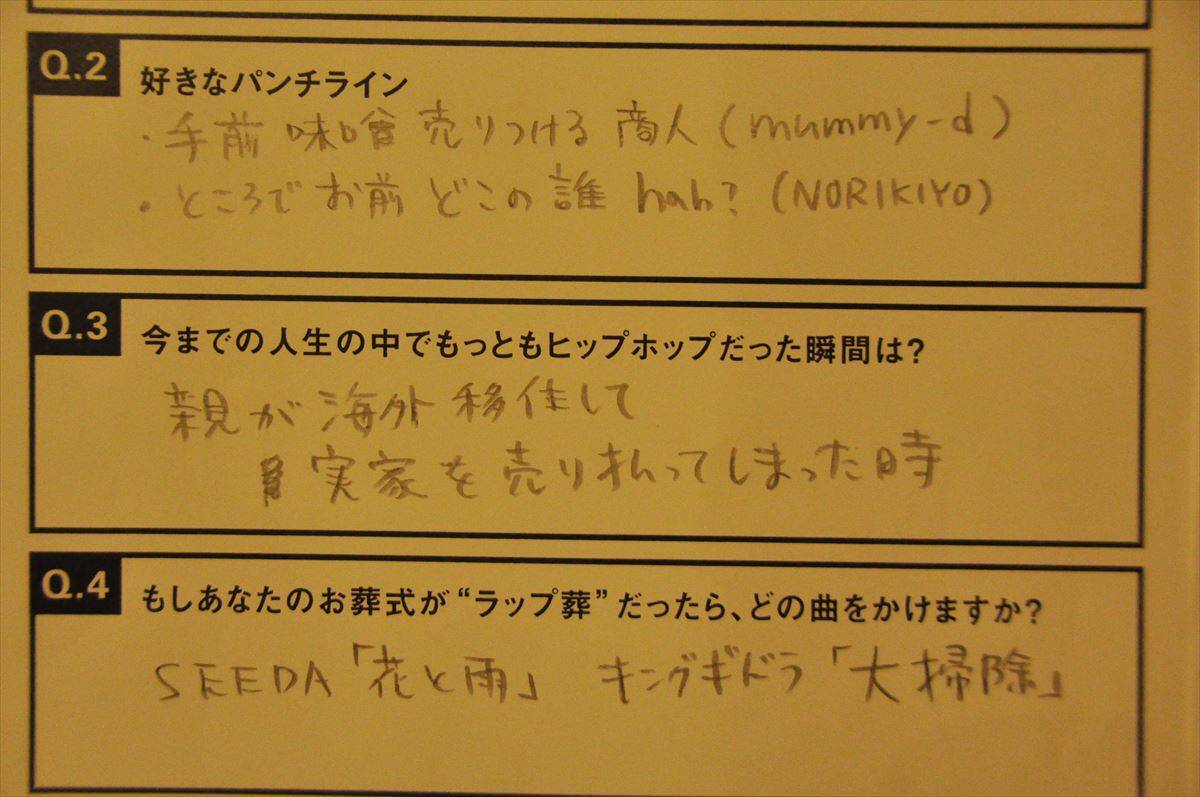 Q.2 好きなパンチライン
・手前味噌売りつける商人(mummy-d)
・ところでお前どこの誰 hah?(NORIKIYO)
Q.3 今までの人生の中でもっともヒップホップだった瞬間は?
親が海外移住して
実家を売り払ってしまった時
Q.4 もしあなたのお葬式が“ラップ葬”だったら、どの曲をかけますか?
SEEDA「花と雨」 キングギドラ「大掃除」